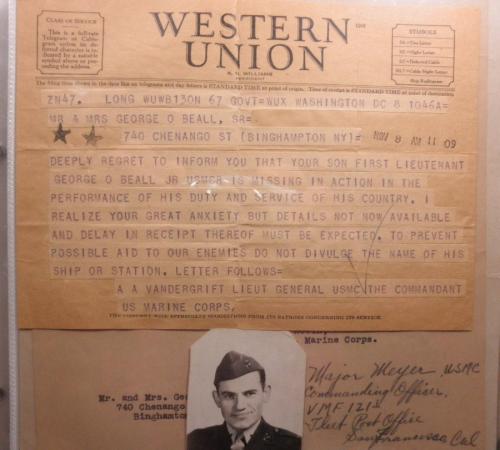 CLASS OF SERVICE
This is a full-rate
Telegram or Cable-
gram unless its de-
ferred character is in-
dicated by a suitable
symbol above or pre-
ceding the address.
WESTERN
UNION
PRESIDENT
SYMBOLS
ZN47. LONG WUWB130N 67 GOVT=WUX WASHINGTON DC 8 1046A=
MR & MRS GEORGE O BEALL, SR=
740 CHENANGO ST (BINGHAMPTON NY)= NOV 8 AM 11 09
DEEPLY REGRET TO INFORM YOU THAT YOUR SON FIRST LIEUTENANT
GEORGE O BEALL JR USMCR IS MISSING IN ACTION IN THE
PERFORMANCE OF HIS DUTY AND SERVICE OF HIS COUNTRY. I
REALIZE YOUR GREAT ANXIETY BUT DETAILS NOT NOW AVAILABLE
AND DELAY IN RECEIPT THEREOF MUST BE EXPECTED. TO PREVENT
POSSIBLE AID TO OUR ENEMIES DO NOT DIVULGE THE NAME OF HIS
SHIP OR STATION. LETTER FOLLOWS=
A A VANDERGRIFT LIEUT GENERAL USMC THE COMMANDANT
US MARINE CORPS.
THE COMPANY WILL APPRECIATE SUGGESTIONS FROM ITS PATRONS CONCERNING ITS SERVICE
Marine Corps.
Mr. and Mrs. Geo
740 Chenango
Binghamto
Major Meyer, USMC
Commanding Officer,
VMF 121
Fleet Post Office
San Francisco Cal